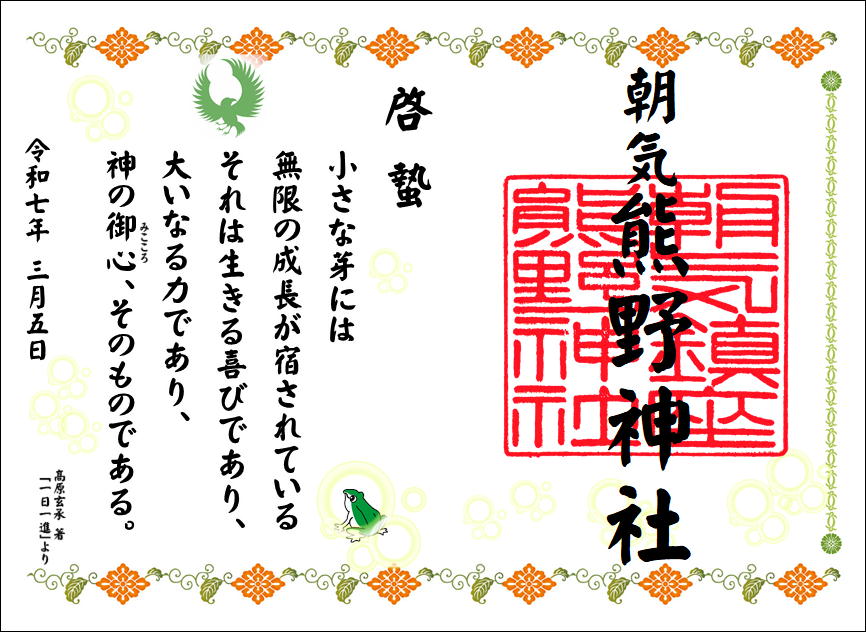 朝気熊野神社
啓蟄
小さな芽には
無限の成長が宿されている
それは生きる喜びであり、
大いなる力であり、
神の御心、そのものである。
みこころ
高原玄承 著
「一日一進」より
令和七年 三月五日